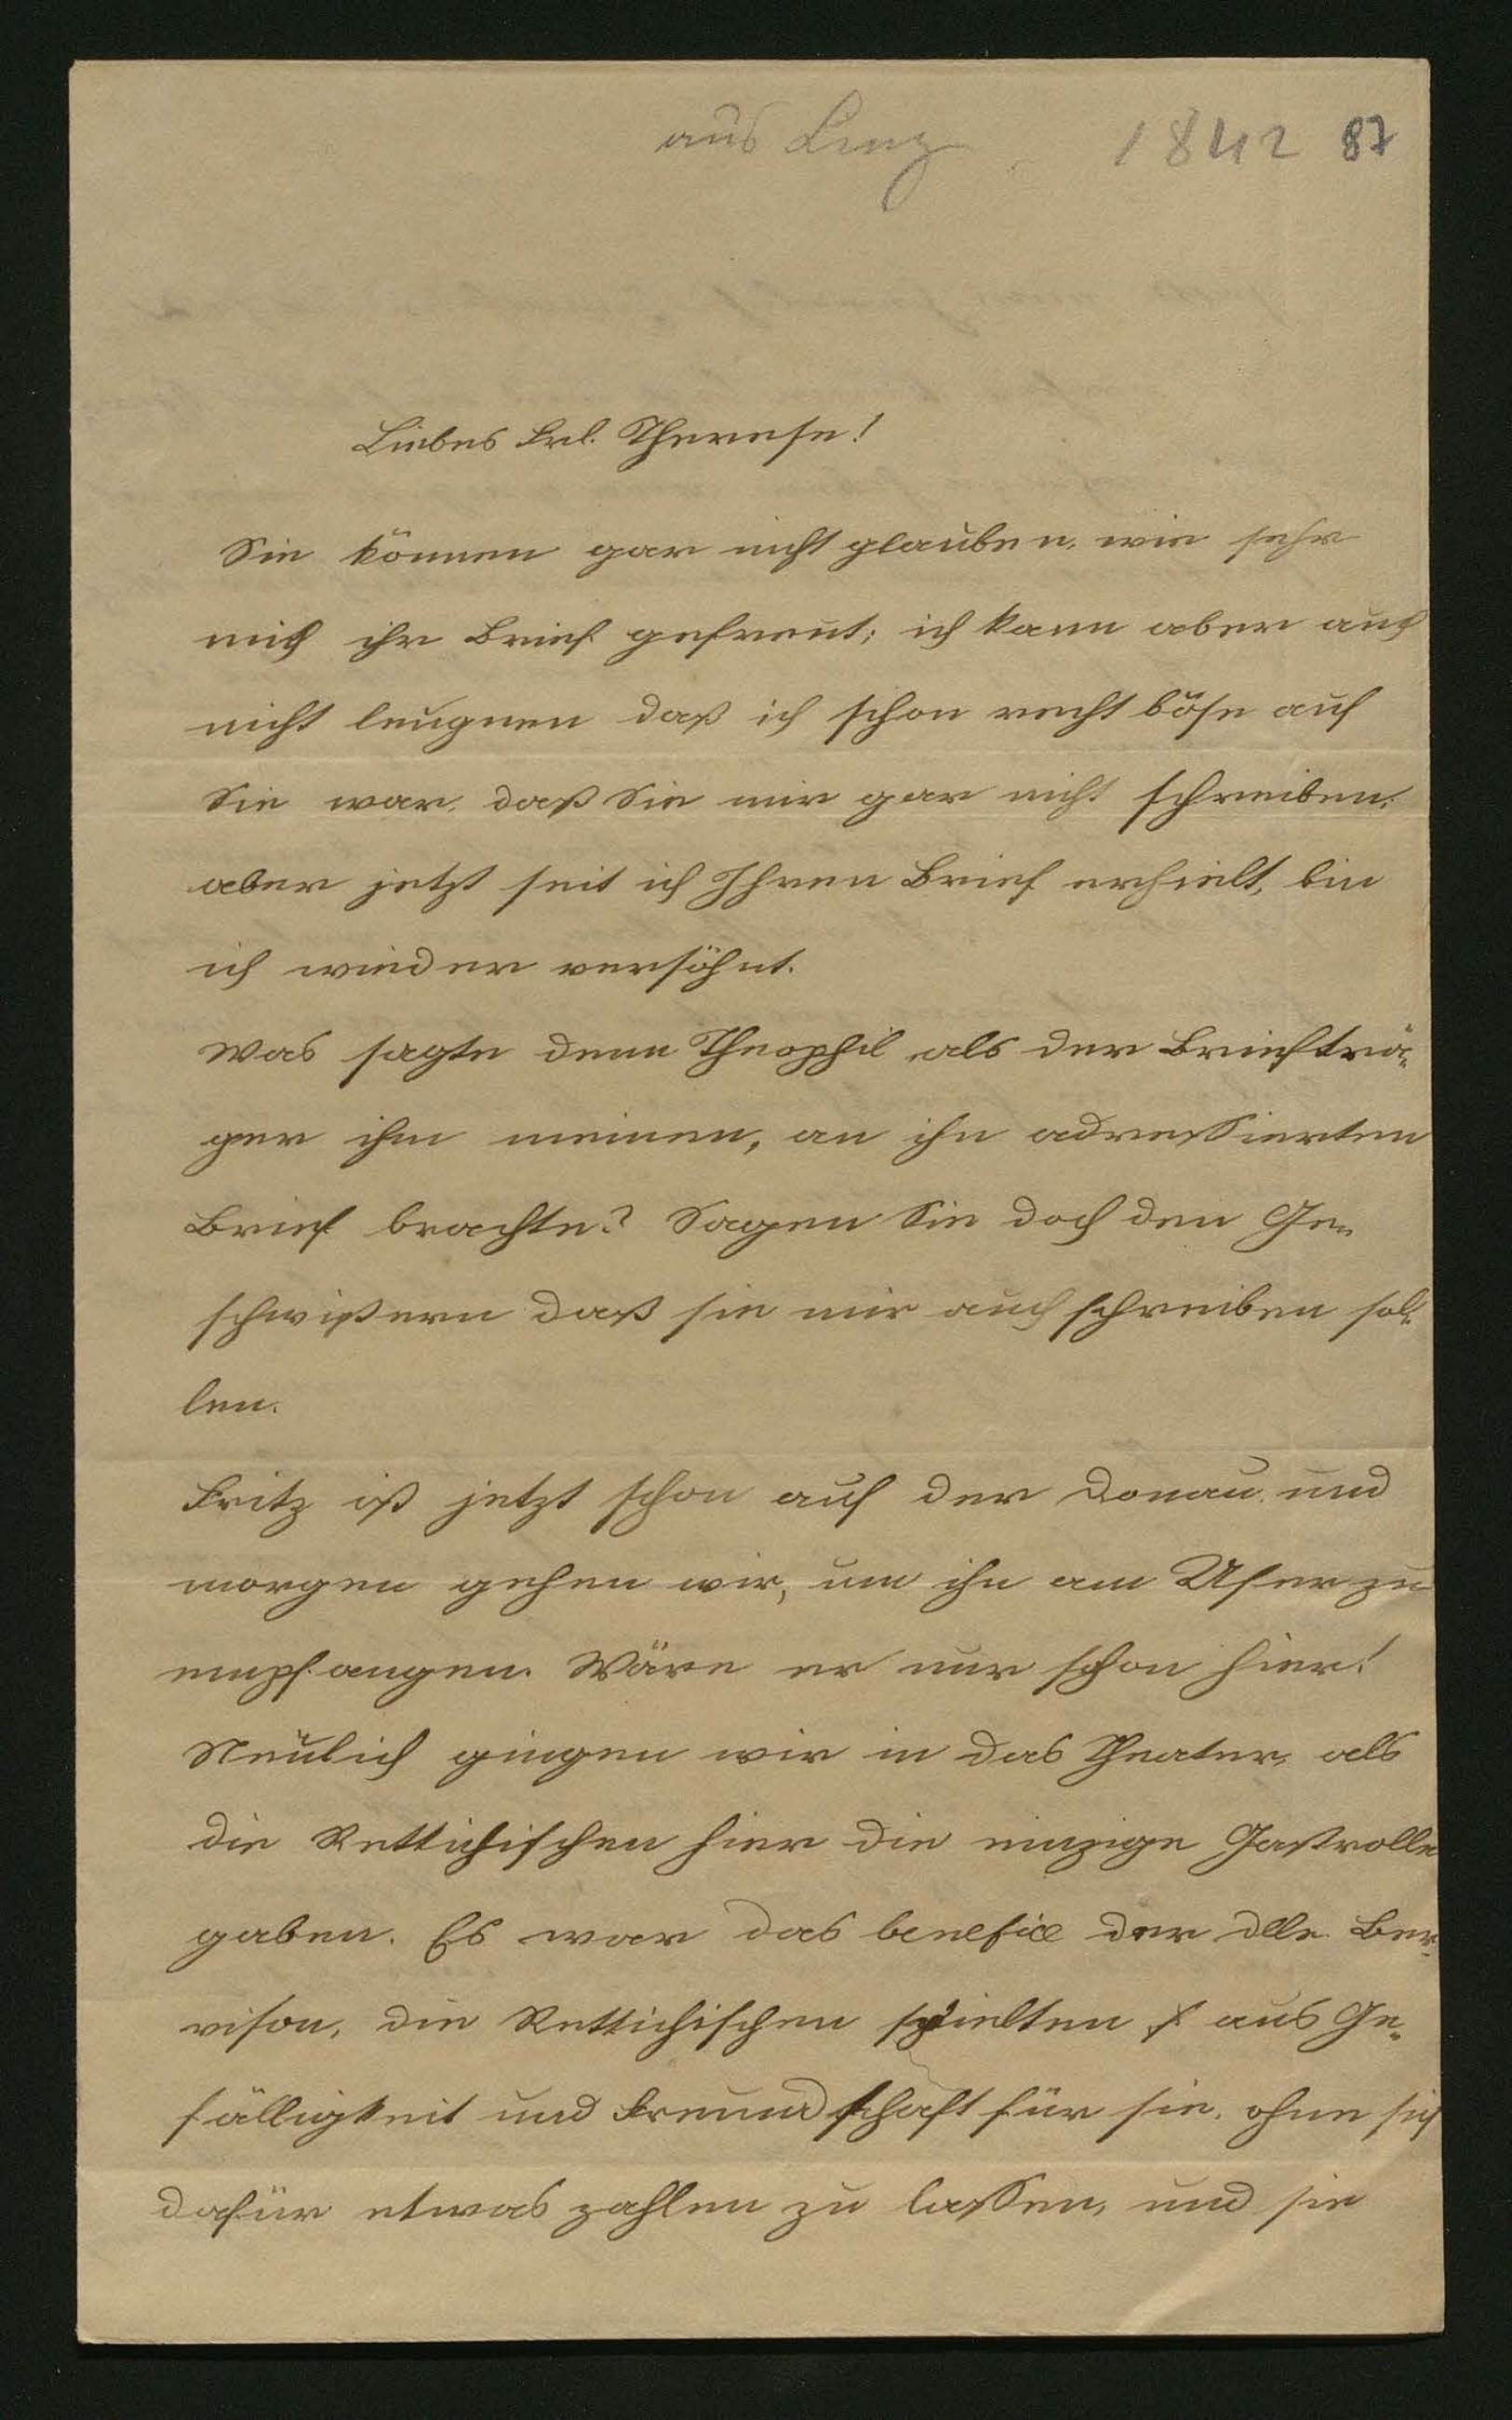 aus Linz 1842 87
Liebes Frl. Therese!
Sie können gar nicht glauben, wie sehr
mich ihr Brief gefreut; ich kann aber auch
nicht leugnen daß ich schon recht böse auf
Sie war, daß Sie mir gar nicht schreiben,
aber jetzt seit ich Ihren Brief erhielt, bin
ich wieder versöhnt.
Was sagte denn Theophil als der Briefträ-
ger ihm meinen, an ihn adressierten
Brief brachte? Sagen Sie doch den Ge-
schwistern daß sie mir auch schreiben sol-
len.
Fritz ist jetzt schon auf der Donau und
morgen gehen wir, um ihn am Ufer zu
empfangen. Wäre er nur schon hier!
Neulich gingen wir in das Theater, als
die Rettichischen hier die einzige Gastrolle
gaben. Es war das benefice der dlle. Ber-
vison, die Rettichischen spielten aus Ge-
fälligkeit und Freundschaft für sie, ohne sich
dafür etwas zahlen zu lassen, und sie